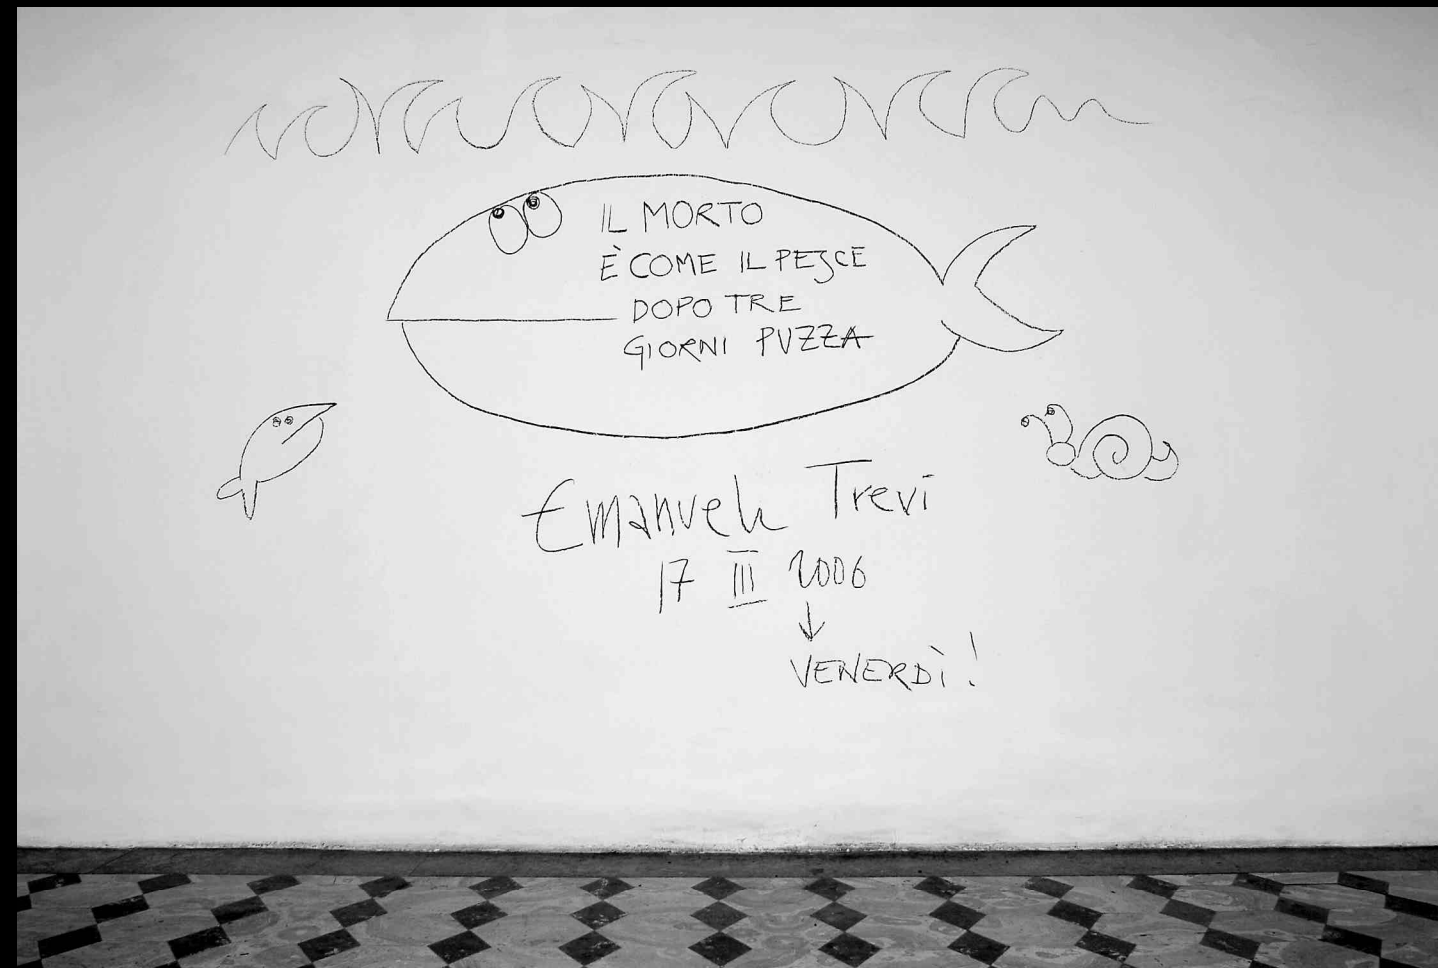 IL MORTO
È COME IL PESCE
DOPO TRE
GIORNI PUZZA
Emanuele Trevi
17 III 2006
↓
VENERDÌ !